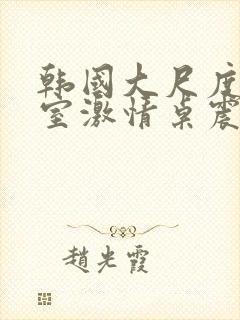 韩國大尺度
室激情桌震
趙光霞